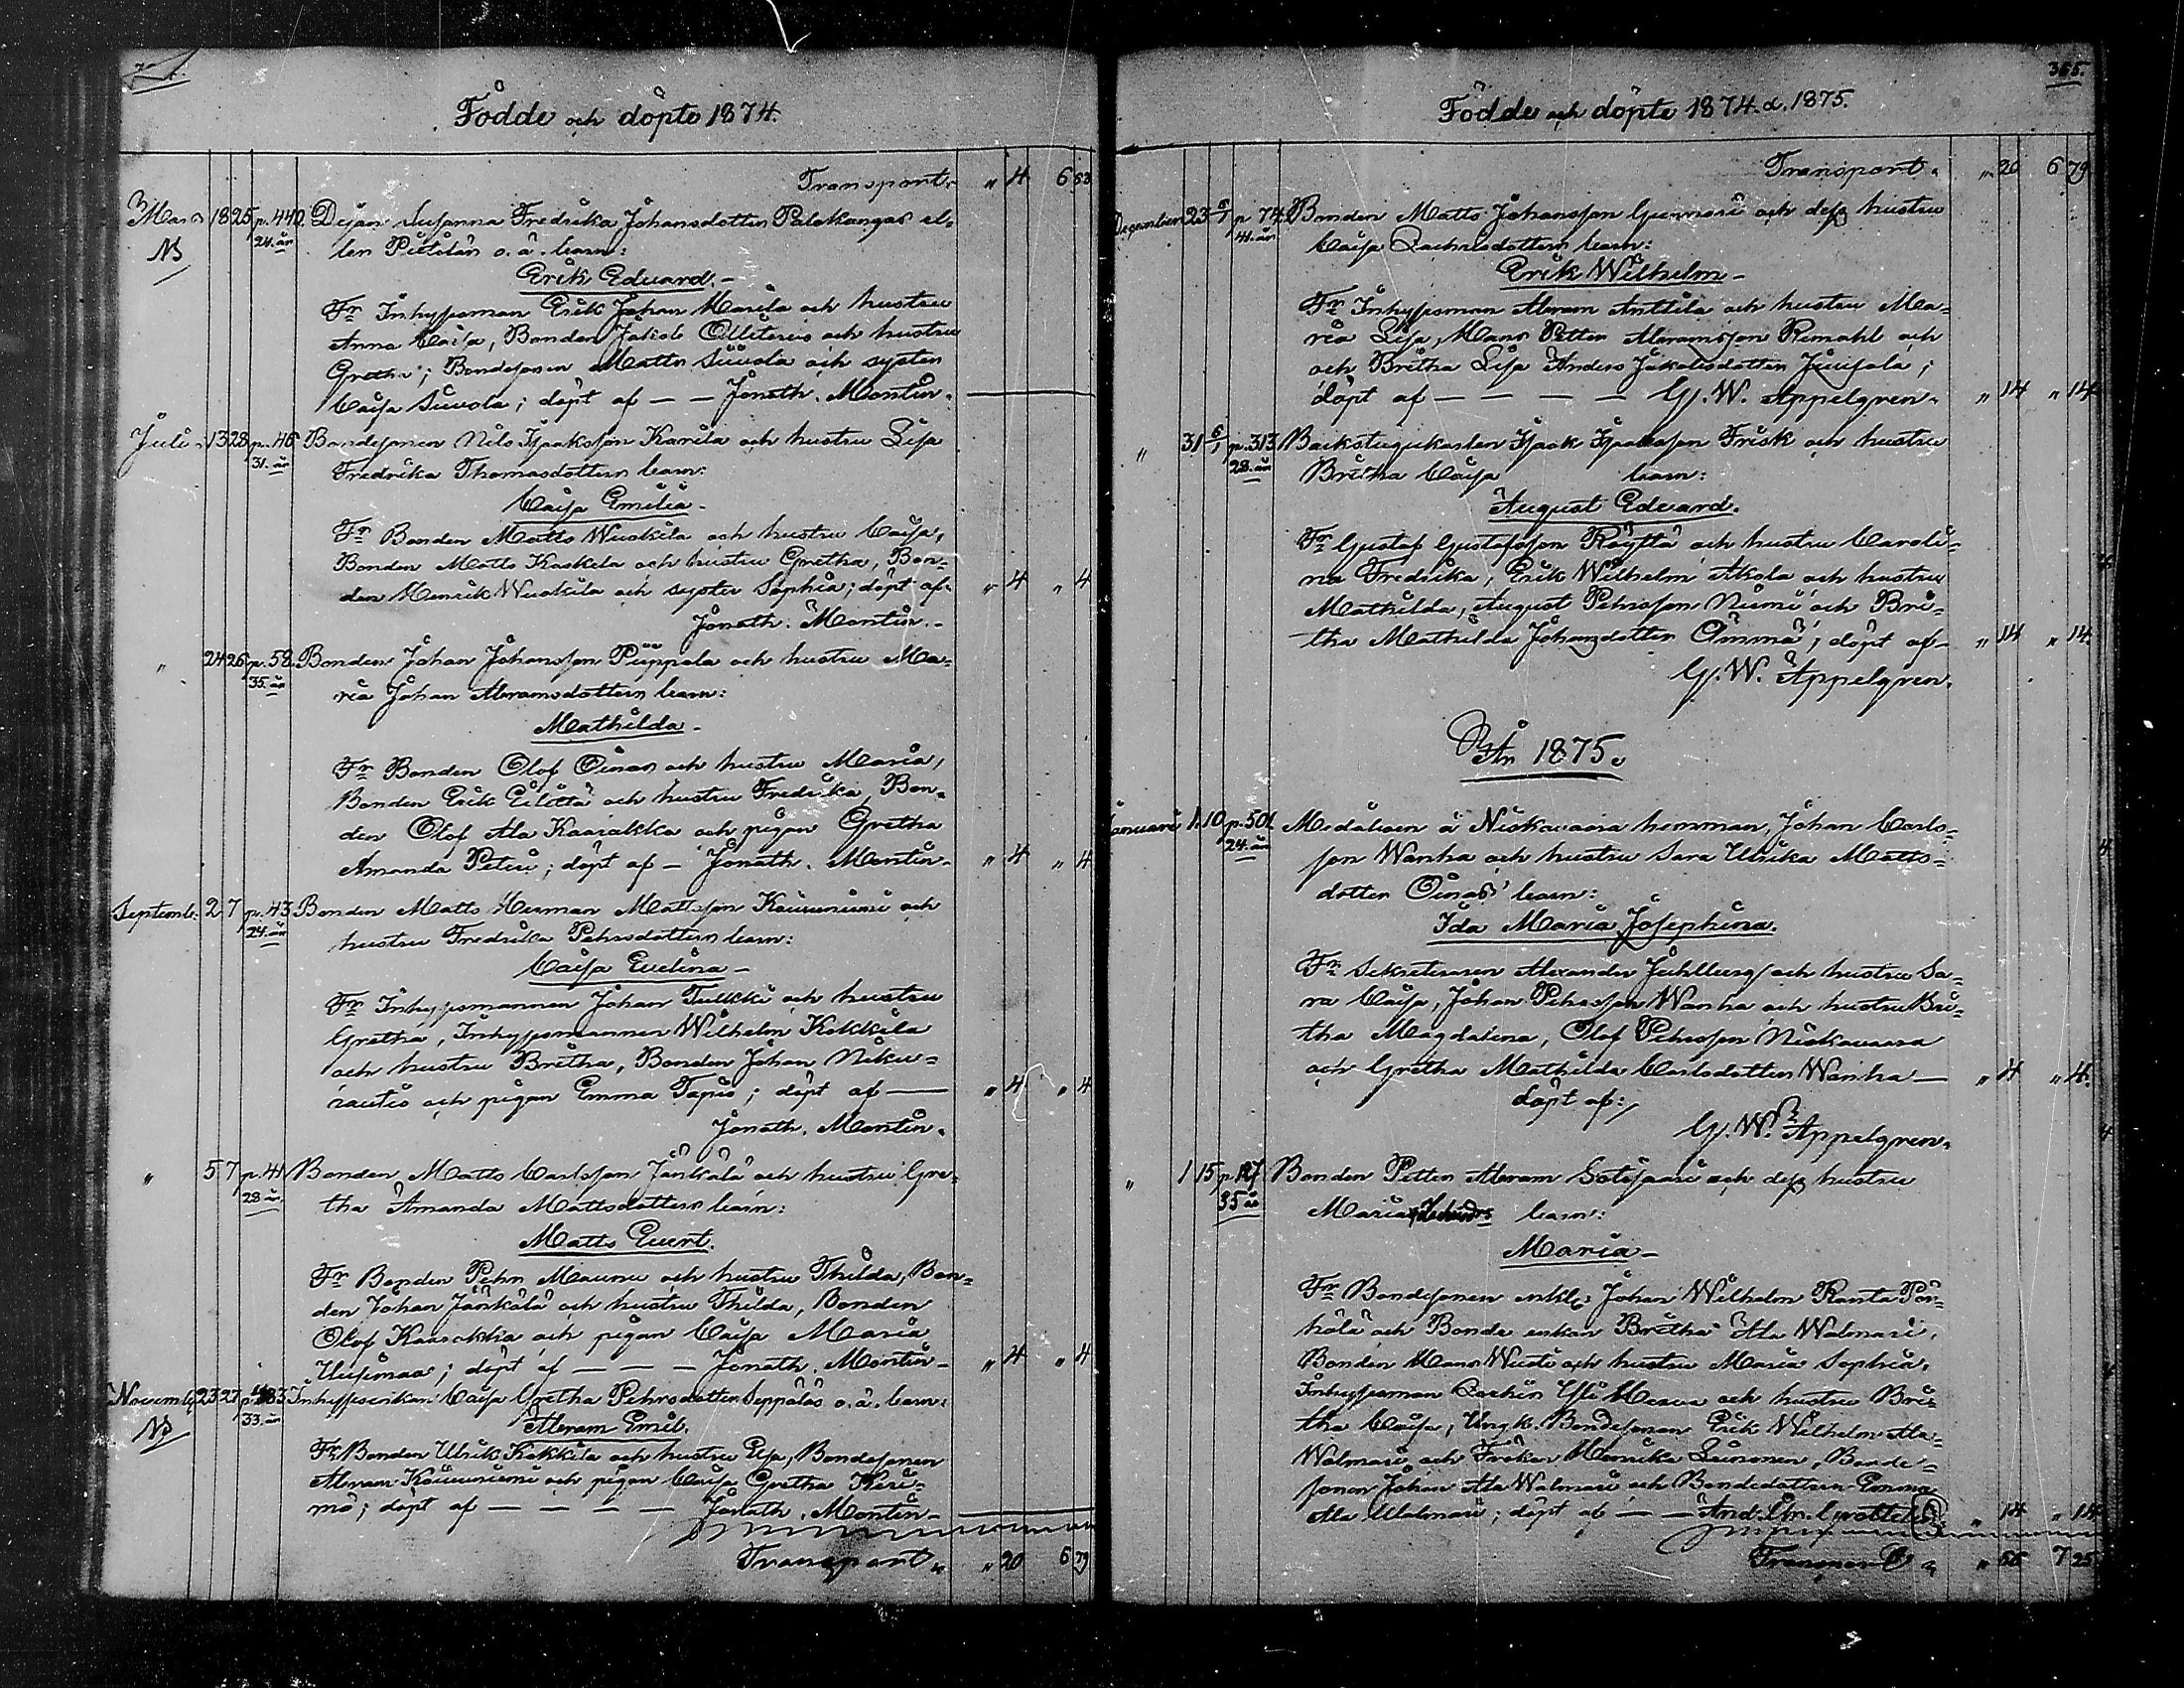 Födde och döpte 1874.
Transport. „ 4 6 63
Mars 18 25 p. 440. Pigan Susanna Fredrika Johansdotter Palokangas el-
24. år
NB
ler Pietilän o. ä. barn:
Erik Eduard.
Fr Inhysesman Erik Johan Marila och hustru
Anna Caisa, Bonden Jakob Ollitervo och hustru
Gretha; Bondesonen Matts Suvola och syster
Caisa Suvola; döpt af — — Jonath. Montin.
Juli 13 28 p. 46 Bondesonen Nils Isaksson Karila och hustru Lisa
31. år
Fredrika Thomasdotters barn:
Caisa Emilia
Fr Bonden Matts Wuokila och hustru Caisa,
Bonden Matts Kaskela och hustru Gretha, Bon-
den Henrik Wuokila och syster Sophia; döpt af „ 4 „ 4
Jonath. Montin.
„ 24 26 p. 58. Bonden Johan Johansson Puppala och hustru Ma-
35. år
ria Johan Abramsdotters barn:
Mathilda
Fr Bonden Olof Oinas och hustru Maria,
Bonden Erik Eilittä och hustru Fredrika, Bon-
den Olof Ala Kaarakka och pigan Gretha
Amanda Peteri; döpt af — Jonath. Montin „ 4 „ 4
Septemb. 2 7 p. 43 Bonden Matts Herman Mattsson Kouvuniemi och
24. år
hustru Fredrika Pehrsdotters barn:
Caisa Evelina
Fr Inhysesmannen Johan Tulkki och hustru
Gretha, Inhysesmannen Wilhelm Kokkila
och hustru Britha, Bonden Johan Niku-
rautio och pigan Emma Tapio; döpt af — „ 4 „ 4
Jonath. Montin.
„ 5 7 p. 41 Bonden Matts Carlsson Jänkälä och hustru Gre-
28 år
tha Amanda Mattsdotters barn:
Matts Evert.
Fr Bonden Pehr Maunu och hustru Thilda, Bon-
den Johan Jänkälä och hustru Thilda, Bonden
Olof Kaarakka och pigan Caisa Maria
Uusimaa; döpt af — — — Jonath. Montin „ 4 „ 4
Novemb. 23 27 p. 483 Inhysesenkan Caisa Gretha Pehrsdotter Seppäläs o. ä. barn:
33. år
NB
Abram Emil.
Fr Bonden Ulrik Kokkila och hustru Lisa, Bondesonen
Abram Kouvuniemi och pigan Caisa Gretha Keri-
mä; döpt af — — — — Jonath. Montin
Transport „ „ 20 6 79
365.
Födde och döpte 1874 & 1875.
Transport. „ 20 6 79
December 23 6/1 p 74. Bonden Matts Johansson Gunnari och dess hustru
41. år
Caisa Zachrisdotters barn:
Erik Wilhelm
Fr Inhysesman Abram Anttila och hustru Ma-
ria Lisa, Mans Petter Abramsson Rimahl och
och Britha Lisa Anders Jakobsdotter Juusola;
döpt af — — — — G. W. Appelgren. „ 14 „ 14
„ 31 6/1 p. 313 Backstugukarlen Isaak Isaksson Frisk och hustru
28. år
Britha Caisa barn:
August Edvard.
Fr Gustaf Gustafsson Röyttä och hustru Caroli-
na Fredrika, Erik Wilhelm Akola och hustru
Mathilda, August Pehrsson Niemi och Bri-
tha Mathilda Johansdotter Ämmä; döpt af „ 14 „ 14.
G. W. Appelgren.
År 1875.
Januari 1. 10 p. 501 Medåboen å Niskavaara hemman, Johan Carls-
24. år
son Wanha och hustru Sara Ulrika Matts-
dotter Oinas' barn:
Ida Maria Josephina.
Fr Sekreteraren Alexander Juhlberg och hustru Sa-
ra Caisa, Johan Pehrsson Wanha och hustru Bri-
tha Magdalena, Olof Pehrsson Niskavaara
och Gretha Mathilda Carlsdotter Wanha — „ 4 „ 4.
döpt af:
G. W. Appelgren.
„ 1 15 p. 127 Bonden Petter Abram Sotisaari och dess hustru
35 år
Maria barn:
Maria
Fr Bondesonen enkl. Johan Wilhelm Ranta Pör-
hölä och Bonde enkan Britha Ala Walmari,
Bonden Hans Wuoti och hustru Maria Sophia,
Inhysesman Zachris Yli Herva och hustru Bri-
tha Caisa; Ungk. Bondesonen Erik Wilhelm Ala
Walmari och Fröken Henrika Leinonen, Bonde-
sonen Johan Ala Walmari och Bondedottren Emma
Ala Walmari; döpt af — — And. Un. „ 14 „ 14
Transport „ „ 66 7 25